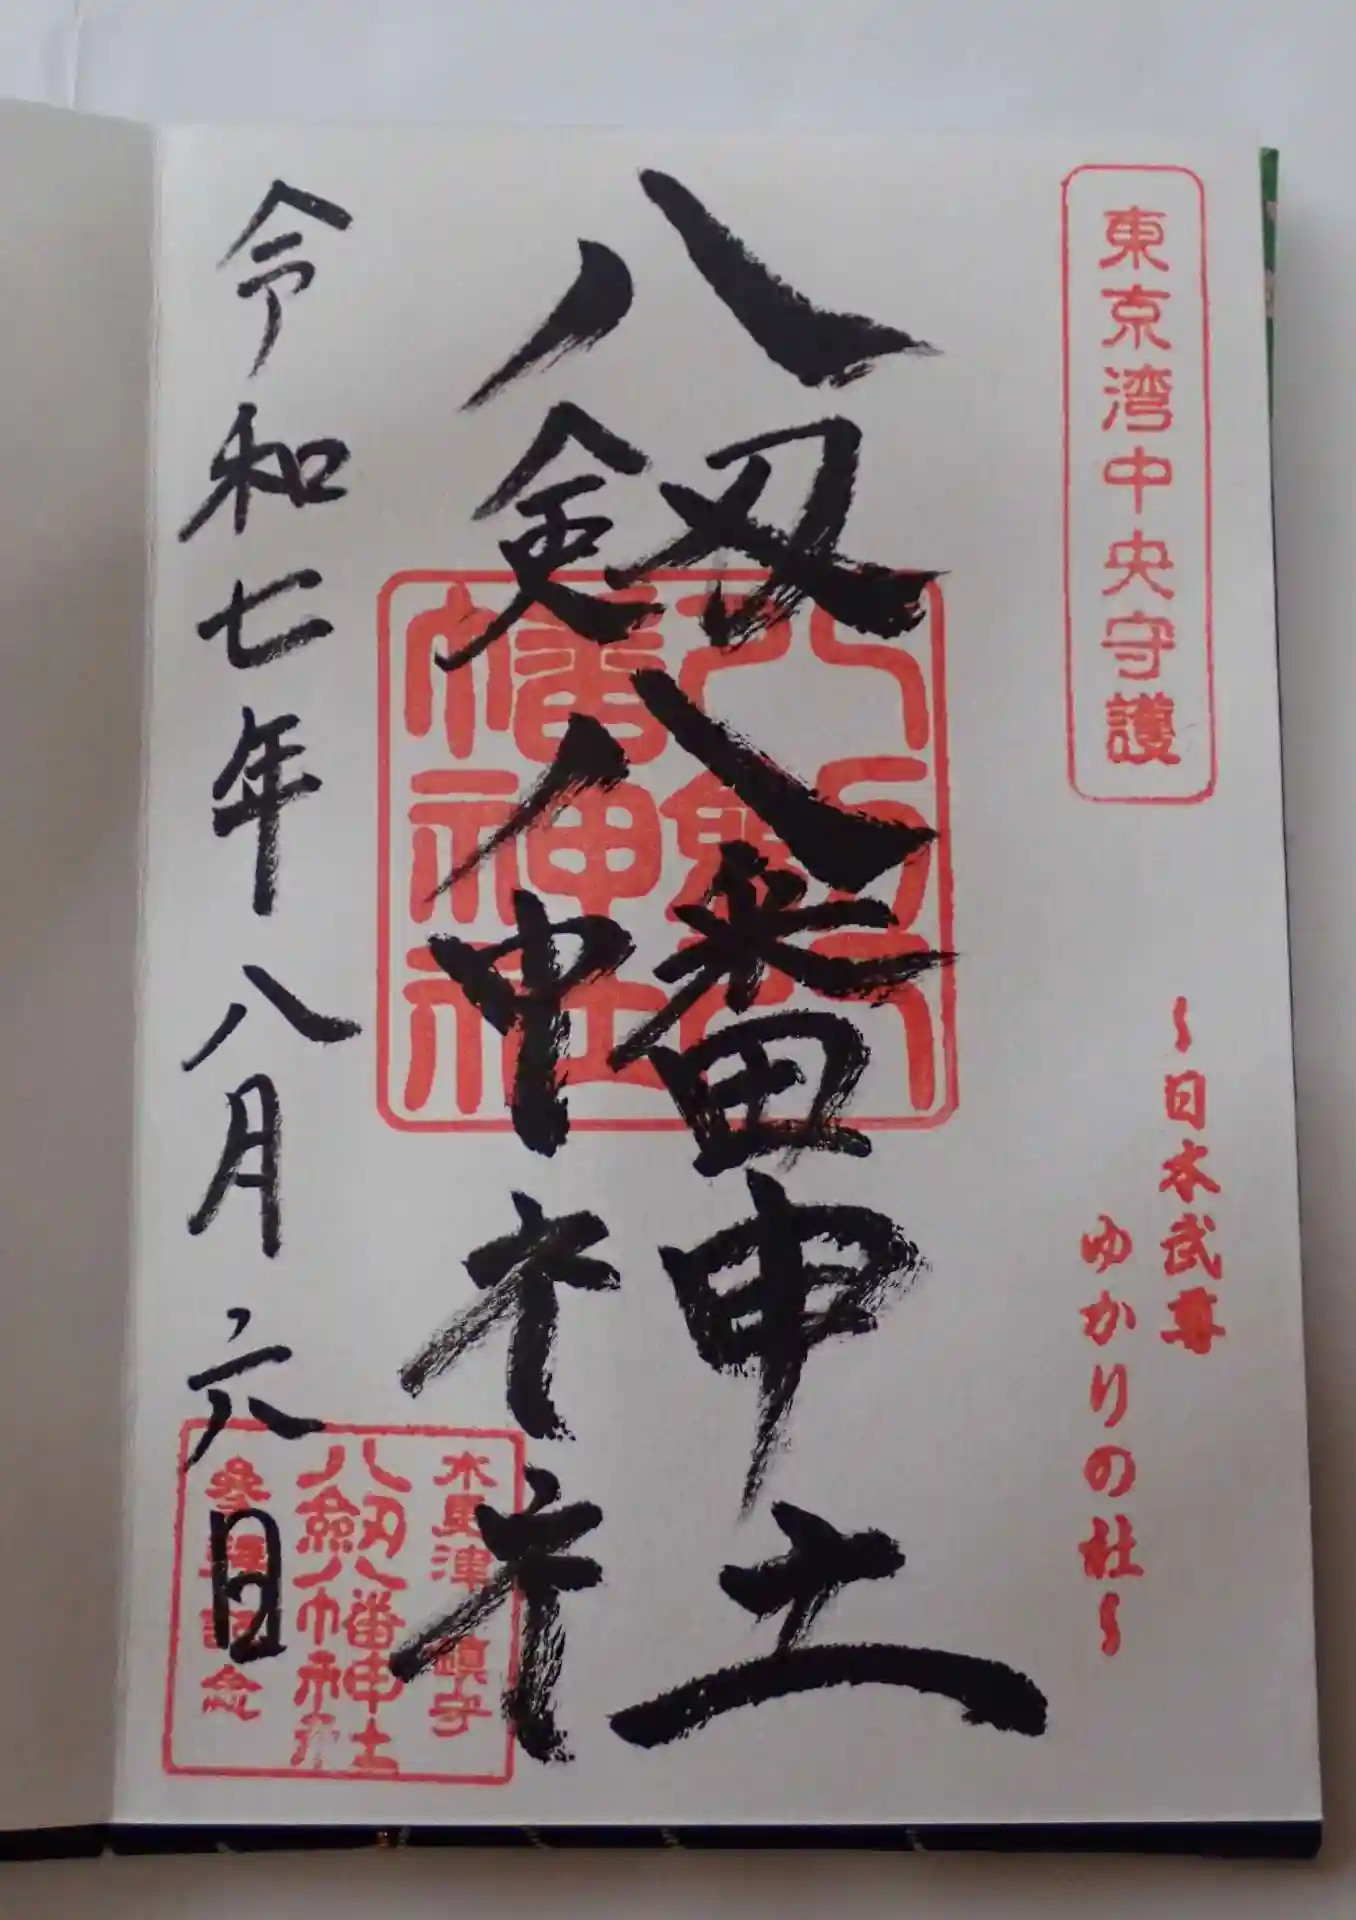 東京湾中央守護
～日本武尊
ゆかりの社～
八剱八幡神社
八剱八
幡神社
令和七年八月六日
木更津 鎮守
八剱八幡神社
参拝記念